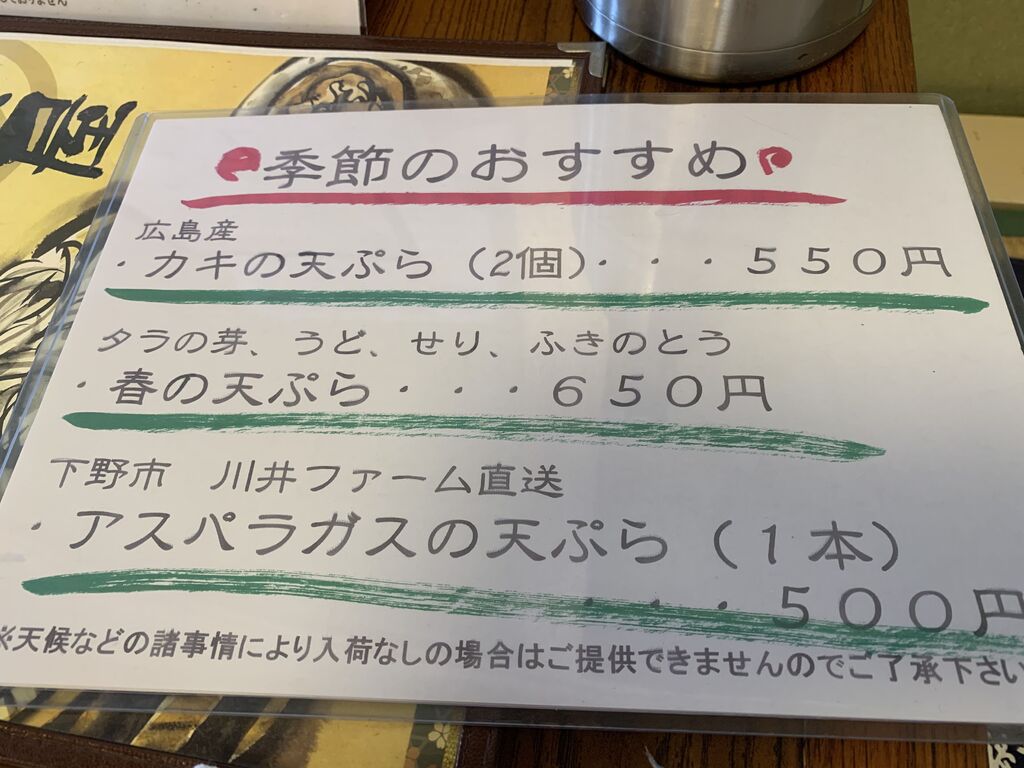 ておりません
屋
季節のおすすめ
広島産
・カキの天ぷら（2個）・・・５５０円
タラの芽、うど、せり、ふきのとう
・春の天ぷら・・・６５０円
下野市　川井ファーム直送
・アスパラガスの天ぷら（１本）
・・・５００円
※天候などの諸事情により入荷なしの場合はご提供できませんのでご了承下さい